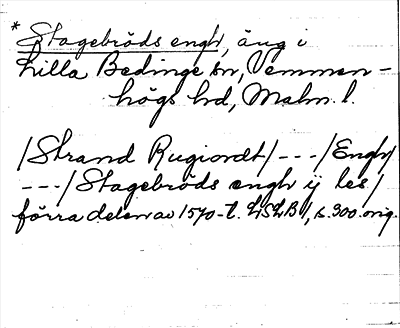 * Stagebröds engh, äng i
Lilla Bedinge sn, Vemmen-
högs hd, Malm. l.
/Strand Rugiordt/ --- /Engh/
---/Stagebröds engh ij les/
förra delen av 1570-t. LSLB 1, s. 300. orig.